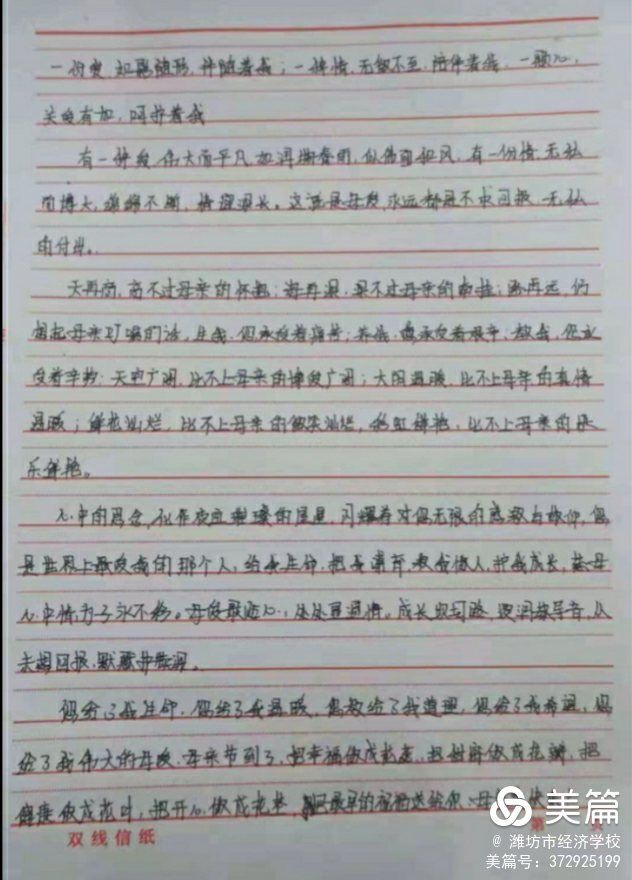 一份爱,如影随形,伴随着我;一种情,无微不至,陪伴着我,一颗心,
关爱有加,呵护着我
有一种爱,伟大而平凡,如润物春雨,似 和风,有一份情,无私
而博大,绵绵不断,情深 长。这就是母爱,永远都是不求回报,无私
的付出。
天再高,高不过母亲的 ;海再深,深不过母亲的 ;路再远,
想起母亲叮嘱的话,生我,您承受着痛苦;养我,您承受着艰辛;教我,您承
受着辛勤;天空广阔,比不上母亲的博爱广阔;太阳温暖,比不上母亲的真情
温暖;鲜花灿烂,比不上母亲的微笑灿烂,彩虹鲜艳,比不上母亲的快
乐鲜艳。
心中的思念,化作夜空璀璨的星星,闪耀着对您无限的感激与敬仰,您
是世界上最爱我的那个人,给我生命,把我 ,教我做人,护我成长,
心中情为了永不移。母爱最 心,处处 真情。成长 , 教导音,从
未想回报,默默 。
您给了我生命,您给了我温暖,您教给了我道理,您给了我希望,您
给了我伟大的母爱,母亲节到了,把幸福做成花 ,把甜 做成花瓣,把
健康做成花叶,把开心做成花 , 最早的祝福送给你,母
双线信纸
第 页
美篇
@ 潍坊市经济学校
美篇号:372925199